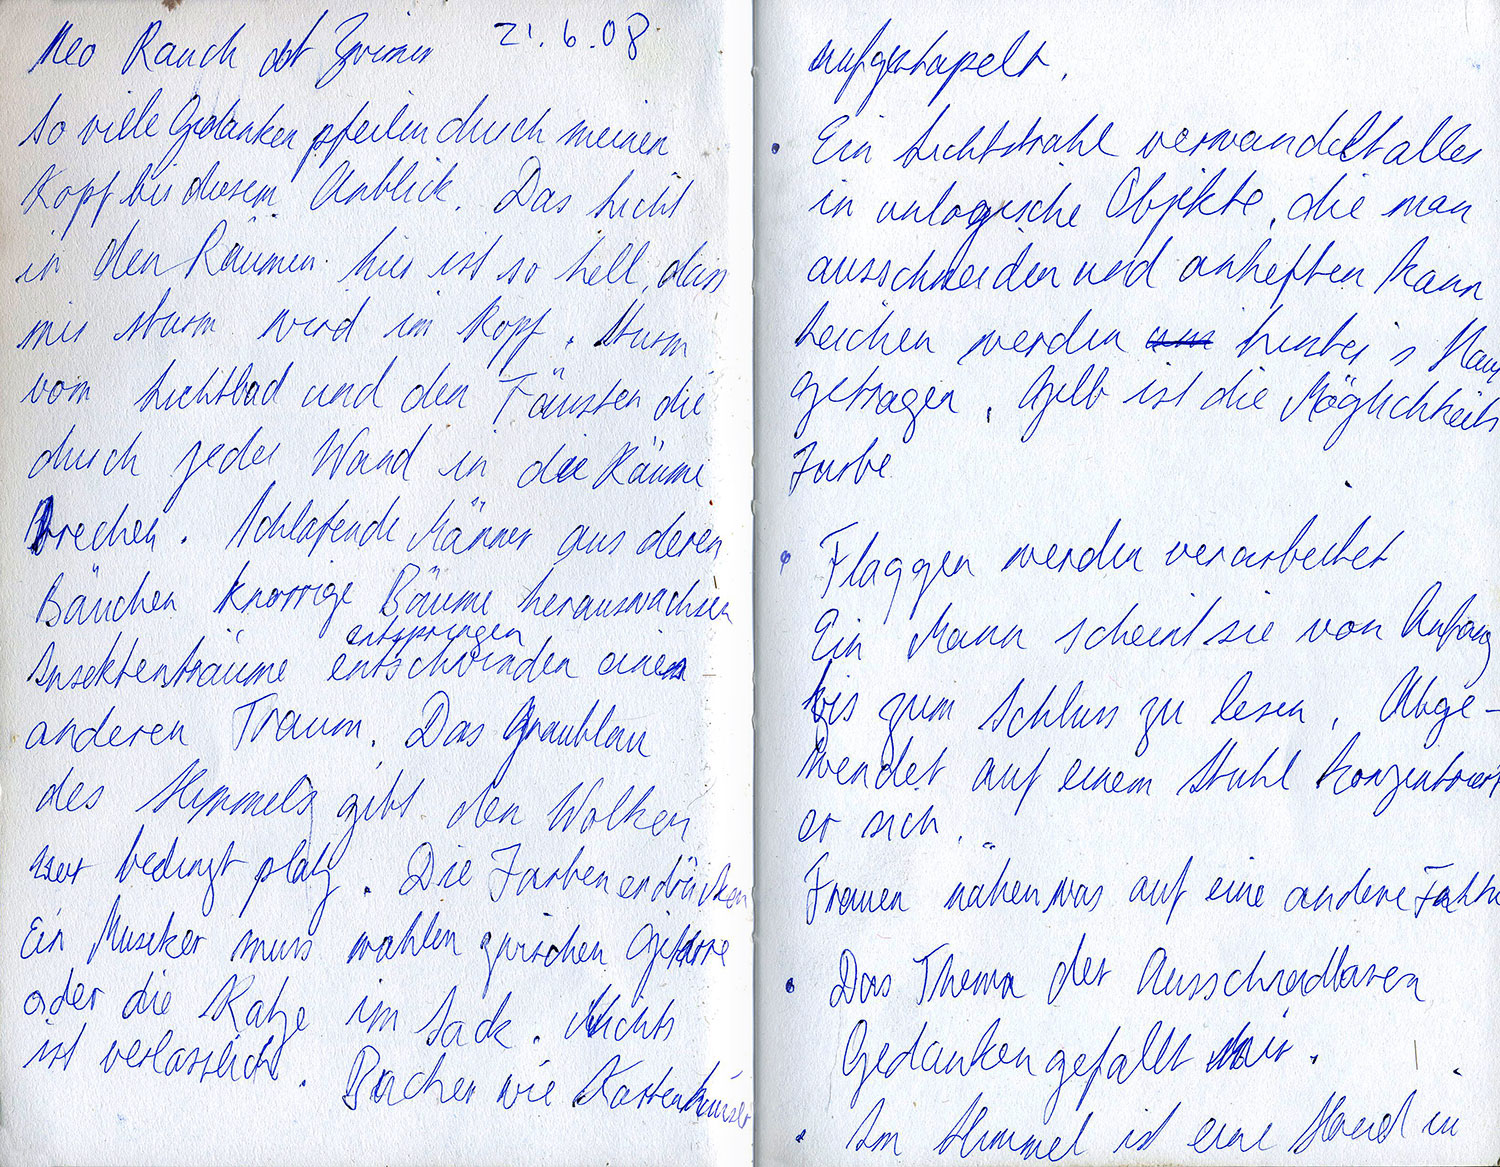 Neo Rauch bei Zwirner 21.6.08
So viele Gedanken pfeilen durch meinen
Kopf bei diesem Anblick. Das Licht
in den Räumen hier ist so hell, dass
mir sturm wird im Kopf. Sturm
vom Lichtbad und den Fäusten die
durch jede Wand in die Räume
brechen. Schlafende Männer aus deren
Bäuchen knorrige Bäume herauswachsen
entspringen
Insektenträume entschwinden einem
anderen Traum. Das Graublau
des Himmels gibt den Wolken
nur bedingt platz. Die Farben erdrücken
Ein Musiker muss wählen zwischen Gitarre
oder die Katze im Sack. Nichts
ist verlässlich. Bücher wie Kartenhäuser
aufgestapelt.
• Ein Lichtstrahl verwandelt alles
in unlogische Objekte, die man
ausschneiden und anheften kann
Leichen werden herbei s Haus
getragen. Gelb ist die Möglichkeits
Farbe
• Flaggen werden verarbeitet
Ein Mann scheint sie von Anfang
bis zum Schluss zu lesen. Abge-
wendet auf einem Stuhl konzentriert
er sich.
Frauen nähen was auf eine andere Fahne
• Das Thema der Ausschneidbaren
Gedanken gefällt mir.
• Im Himmel ist eine Hand in